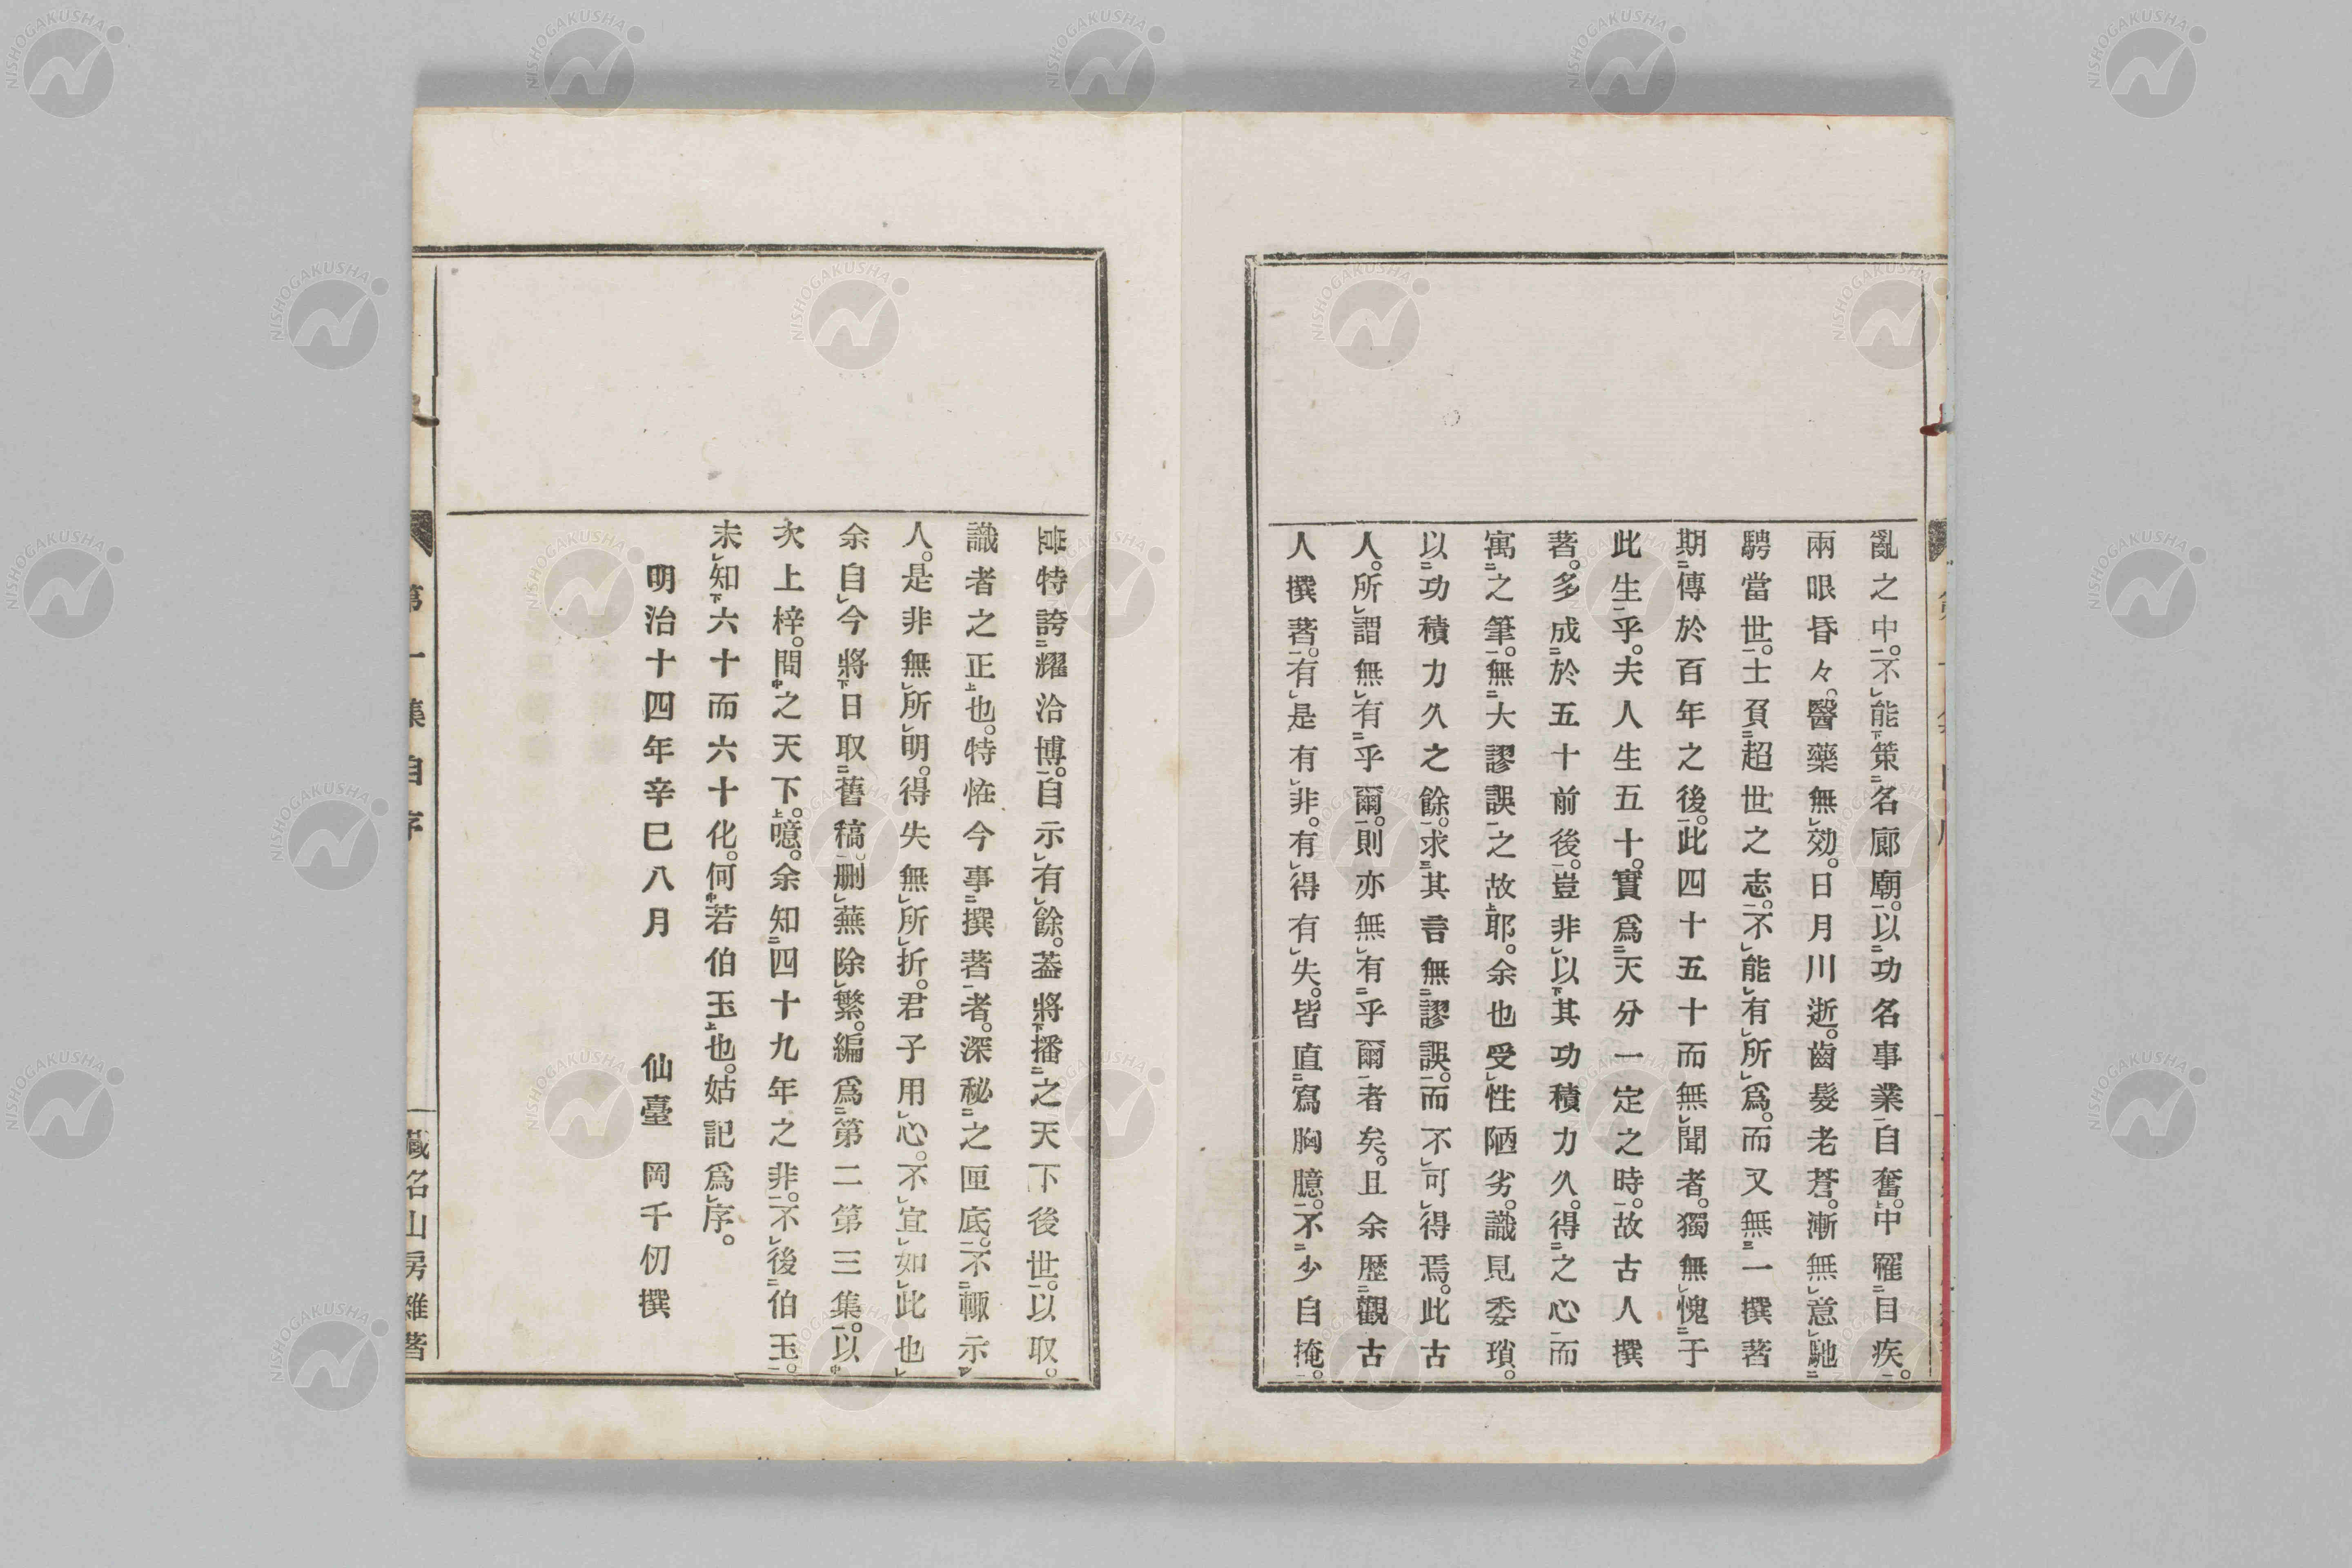 亂之中。不能策名廊廟。以功名事業自奮。中罹目疾。
兩眼昏々。醫藥無効。日月川逝。齒髮老蒼。漸無意馳
騁當世。士頁超世之志。不能有所爲。而又無一撰著
期傳於百年之後。此四十五十而無聞者。獨無愧于
此生乎。夫人生五十。實爲天分一定之時。故古人撰
著。多成於五十前後。豈非以其功積力久。得之心而
寓之筆。無大謬誤之故耶。余也受性陋劣。識見委瑣。
以功積力久之餘。求其言無謬誤。而不可得焉。此古
人。所謂無有乎爾。則亦無有乎爾者矣。且余歷觀古
人撰著。有是有非。有得有失。皆直寫胸臆。不少自掩。
特誇耀洽博。自示有餘。葢將播之天下後世。以取
識者之正也。特恠今事撰著者。深秘之匣底。不輙示
人。是非無所明。得失無所折。君子用心。不宜如此也
余自今將日取舊稿。删蕪除繁。編爲第二第三集。以
次上梓。問之天下。噫。余知四十九年之非。不後伯玉。
未知六十而六十化。何若伯玉也。姑記爲序。
明治十四年辛巳八月　仙臺　岡千仞撰
第一集自序
藏名山房雜著
NISHOGAKUSHA